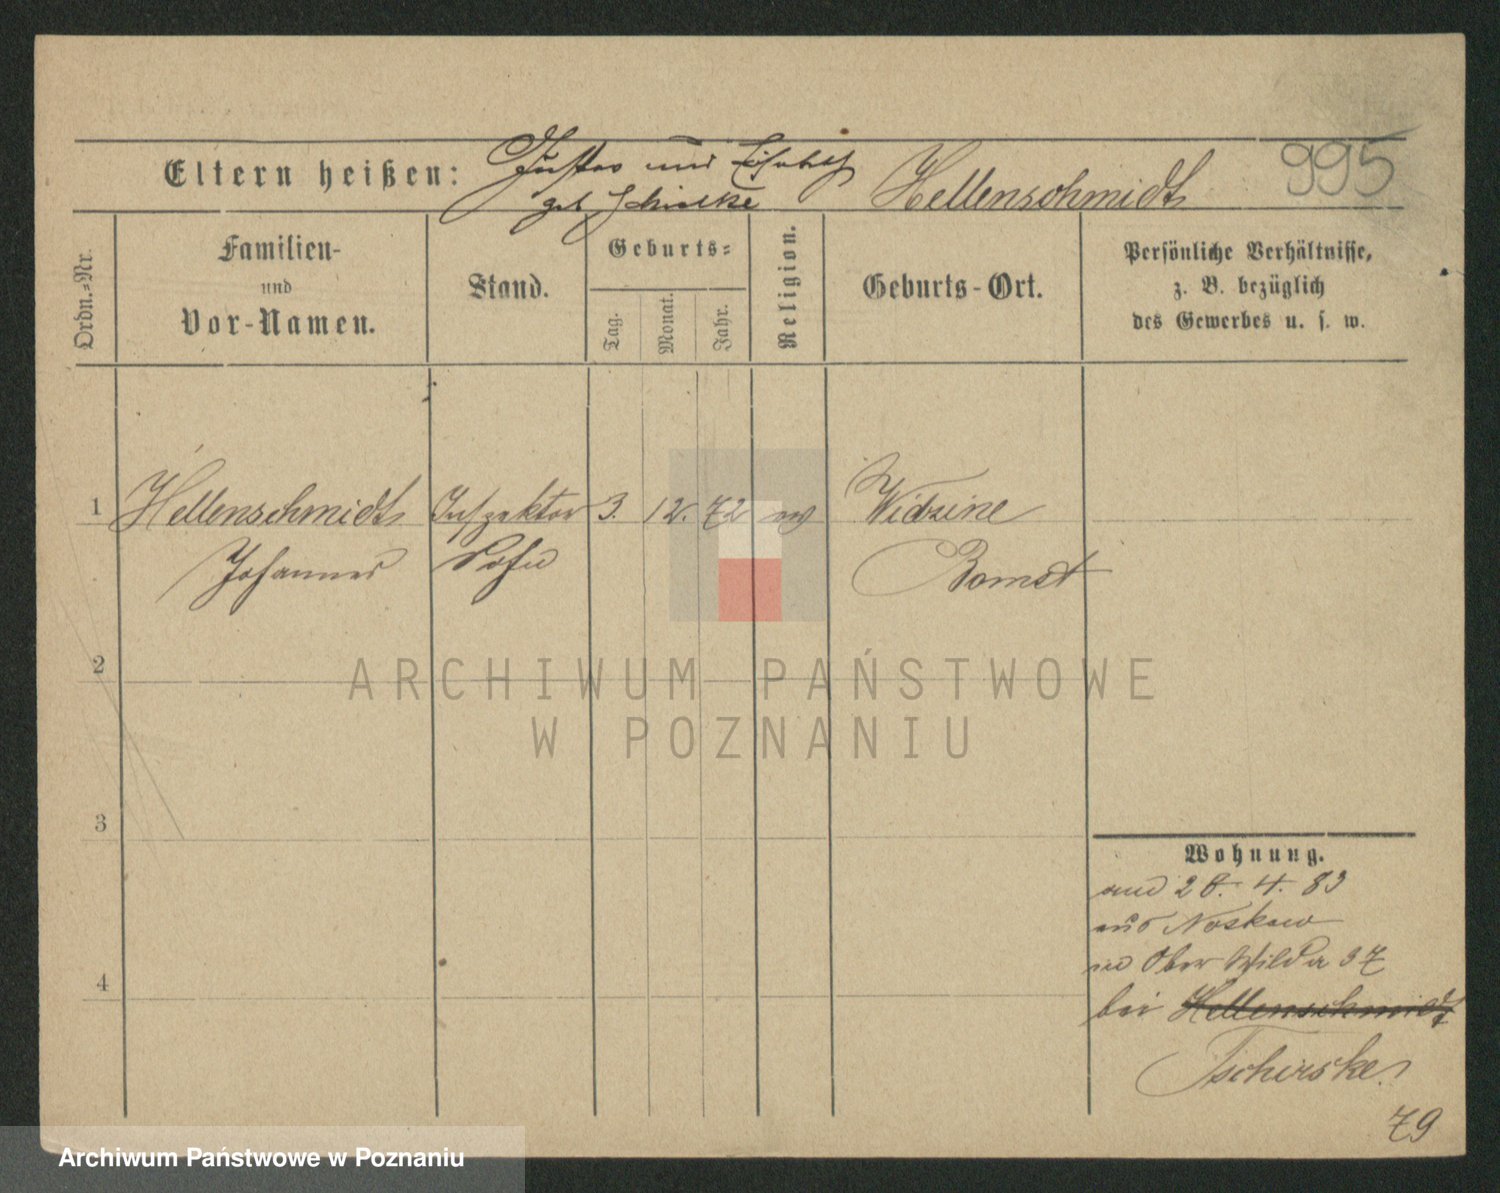 995
Eltern heißen: Gustav und Elisabeth Hellenschmidt
geb Schielke
Ordn.=Nr.
Familien-
und
Vor-Namen.
Stand.
Geburts=
Tag.
Monat.
Jahr.
Religion.
Geburts-Ort.
Persönliche Verhältnisse,
z. B. bezüglich
des Gewerbes u. s. w.
1 Hellenschmidt Inspektor 3. 12. 72 Widzine
Johannes Sohn Bomst
2
3
4
Wohnung.
28. 4. 83
aus Noskow
in Ober Wilda 37
bei Hellenschmidt
Tschirske
79
ARCHIWUM PAŃSTWOWE
W POZNANIU
Archiwum Państwowe w Poznaniu